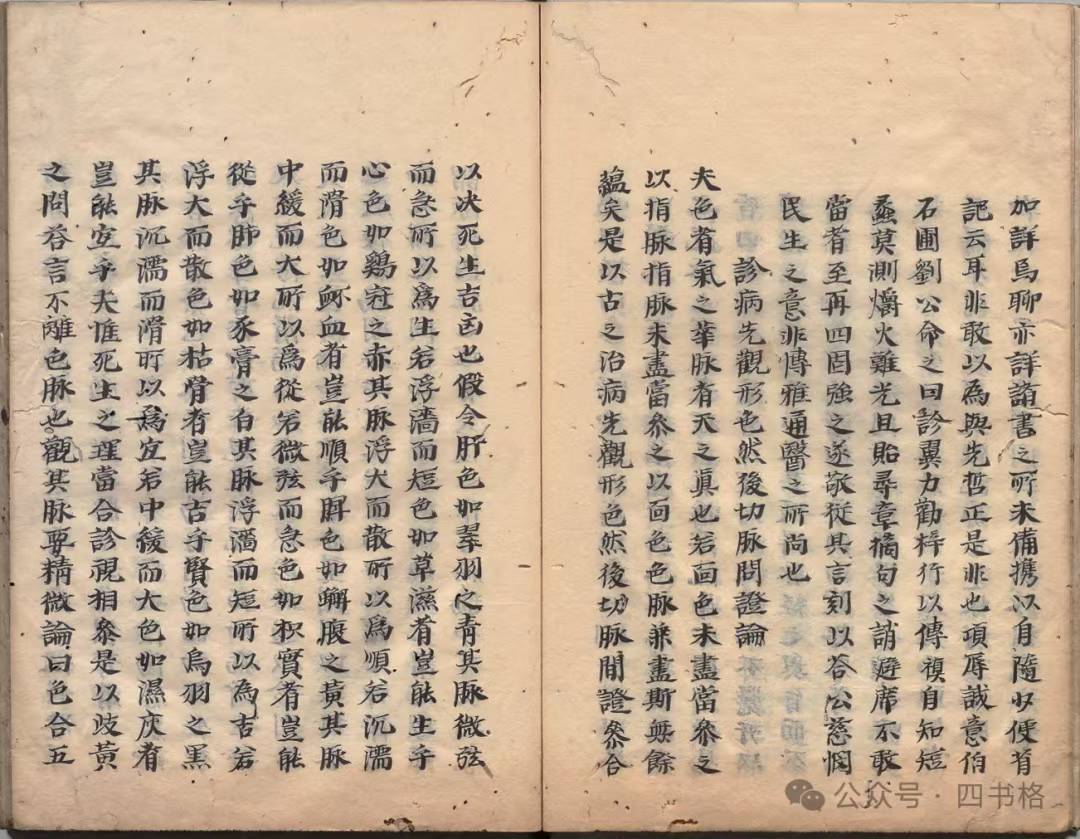 加詳焉聊亦詳諸書之所未備携以自隨少便肓
記云耳非敢以為與先哲正是非也項辱誠意伯
石圃劉公命之曰診翼力勸梓行以傳複自知短
蠡莫測爝火難光且貽尋章摘句之誚避席不敢
當者至再四固強之遂敬從其言刻以荅公慈惘
民生之意非愽雅通醫之所尚也
診病先觀形色然後切脉問證論
夫色者氣之華脉者天之真也若面色未盡當參之
以指脉指脉未盡當參之以面色色脉兼盡斯無餘
蘊矣是以古之治病先觀形色然後切脉問證參合
以决死生吉凶也假令肝色如翠羽之青其脉微弦
而急所以為生若浮濇而短色如草滋者豈能生乎
心色如鷄冠之赤其脉浮大而散所以為順若沉濡
而滑色如衃血者豈能順乎脾色如蠏腹之黃其脉
中緩而大所以為從若微弦而急色如枳實者豈能
從乎肺色如豕膏之白其脉浮濇而短所以為吉若
浮大而散色如枯骨者豈能吉乎腎色如烏羽之黑
其脉沉濡而滑所以為宜若中緩而大色如濕灰者
豈能宜乎夫惟死生之理當合診視相參是以歧黃
之問荅言不離色脉也觀其脉要精微論曰色合五
公众号 · 四书格